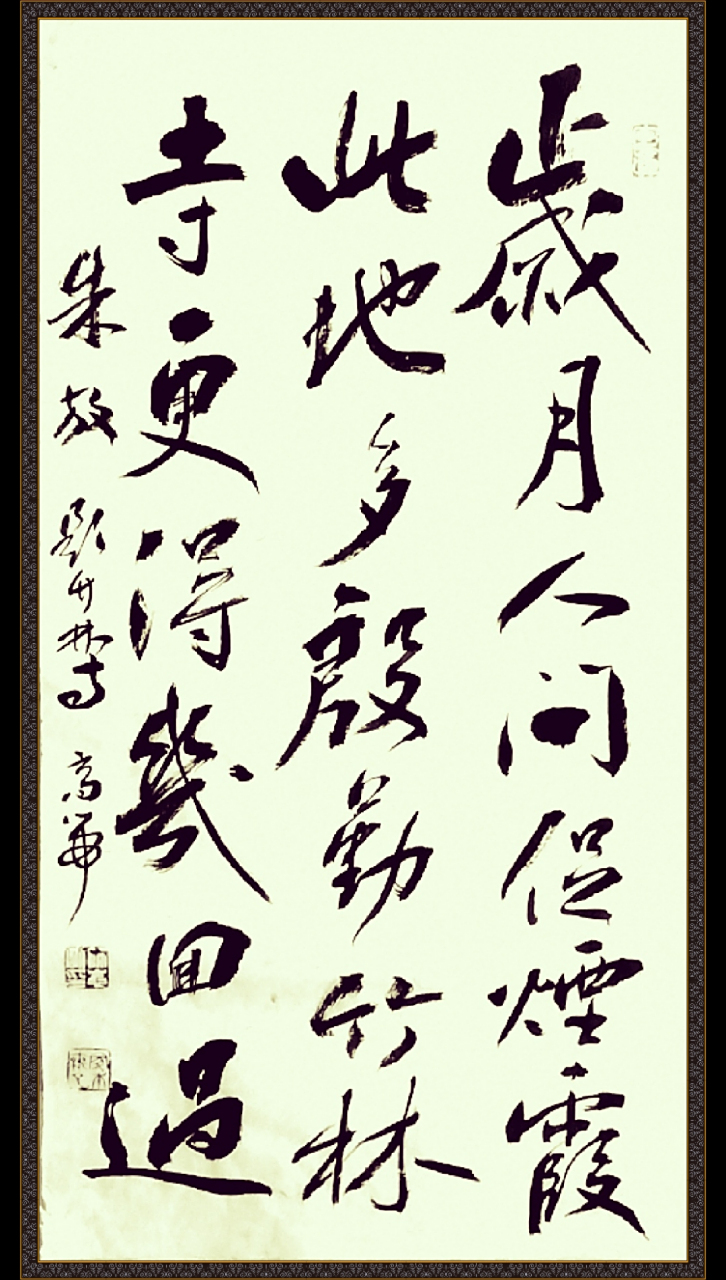 歲月人间促煙霞
此地多殷勤竹林
寺更得幾回過
朱放 題竹林寺 高華